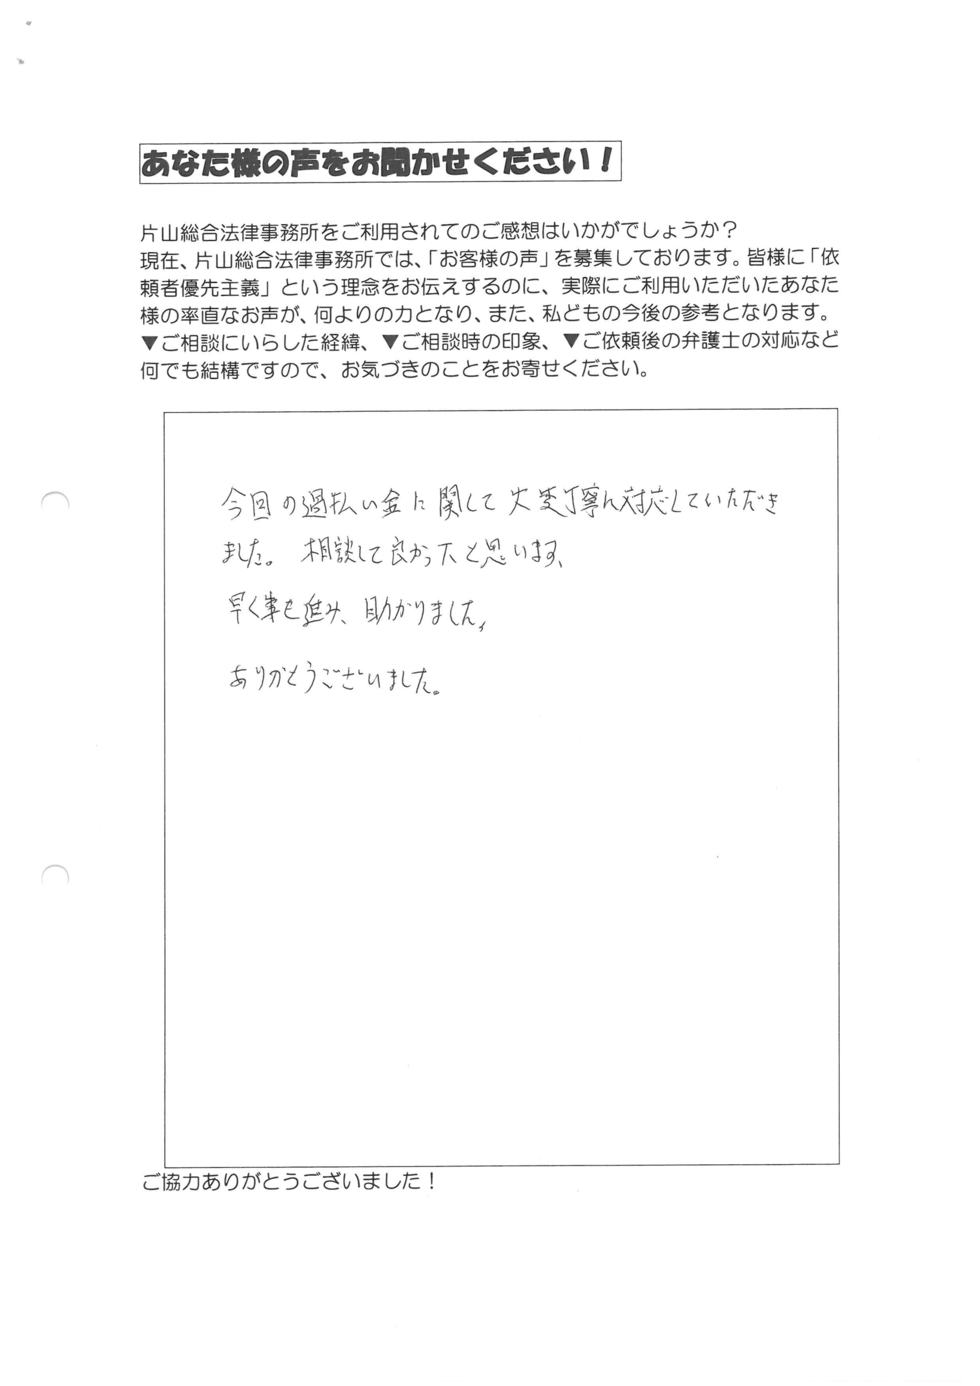 あなた様の声をお聞かせください!
片山総合法律事務所をご利用されてのご感想はいかがでしょうか?
現在、片山総合法律事務所では、「お客様の声」を募集しております。皆様に「依
頼者優先主義」という理念をお伝えするのに、実際にご利用いただいたあなた
様の率直なお声が、何よりの力となり、また、私どもの今後の参考となります。
▼ご相談にいらした経緯、▼ご相談時の印象、▼ご依頼後の弁護士の対応など
何でも結構ですので、お気づきのことをお寄せください。
今回の過払い金に関して大変丁寧に対応していただき
ました。相談して良かったと思います、
早く事も進み、助かりました。
ありがとうございました。
ご協力ありがとうございました!